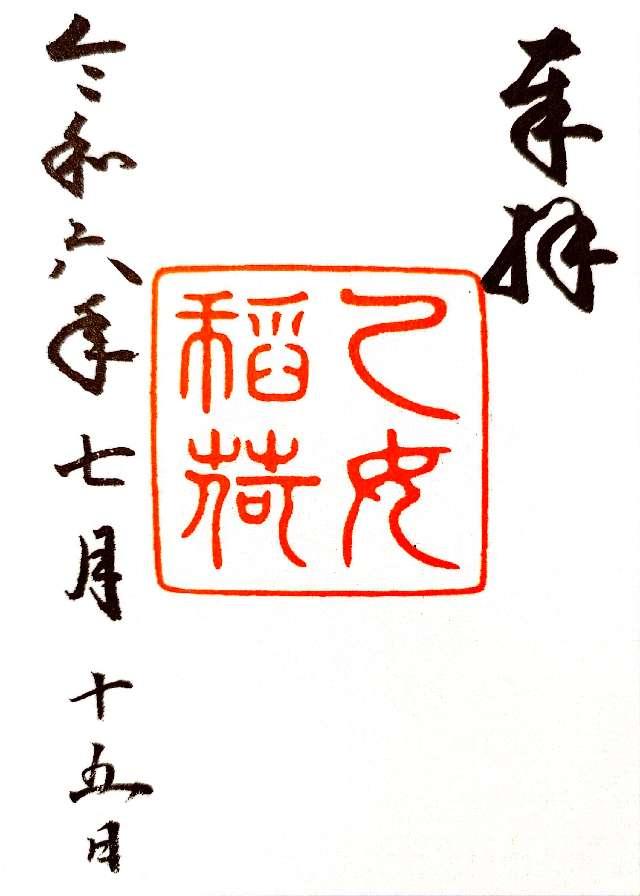 奉拝
乙女
稲荷
令和六年七月十五日